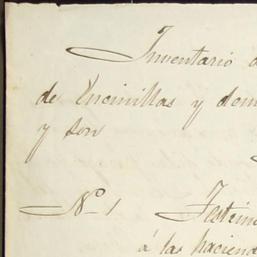 Inventario
de Encinillas y dem
y son
Nº 1 Testim
á las haciend